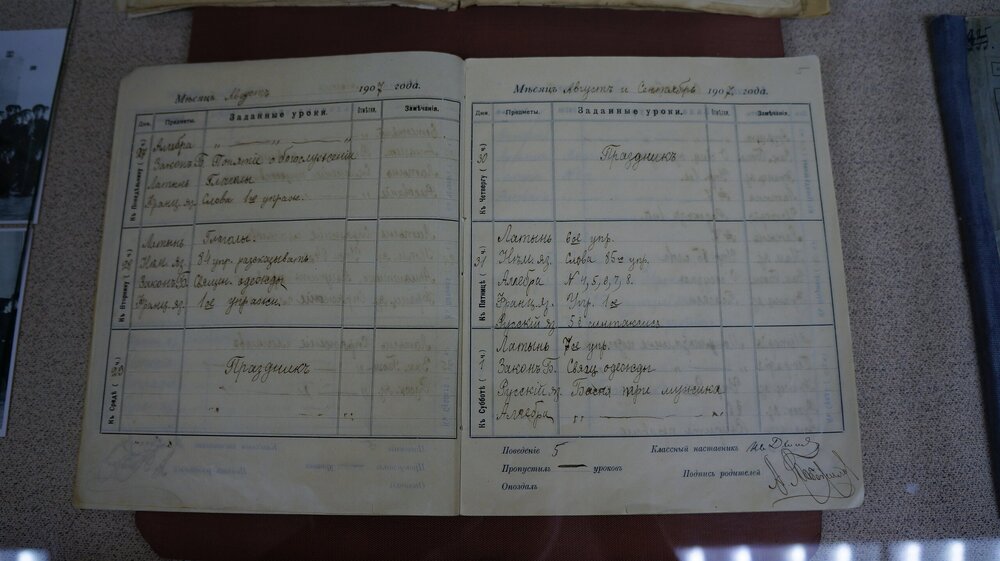 Мѣсяцъ Августъ 1907 года.
Дни. Предметы. Заданные уроки. Отмѣтки. Замѣчанія.
Къ Понедѣльнику ( ч)
Алгебра „ — „ — „
Законъ Б. Понятіе о богослуженіи
Латынь Глаголы
Франц. яз. Слова 1ое упражн.
Къ Вторнику (28 ч)
Латынь Глаголы.
Нѣм. яз. 84 упр. разсказывать
Законъ Б. Свящ. одежды
Франц. яз. 1ое упражн.
Къ Средѣ (29 ч)
Праздникъ
„ — „
Мѣсяцъ Августъ и Сентябрь 1907 года.
Дни. Предметы. Заданные уроки. Отмѣтки. Замѣчанія.
Къ Четвергу ( 30 ч)
Праздникъ
Къ Пятницѣ ( 31 ч)
Латынь 6ое упр.
Нѣм. яз. Слова 85ое упр.
Алгебра N 4, 5, 6, 7, 8.
Франц. яз. Упр. 1ое
Русскій яз.
Къ Субботѣ ( 1 ч)
Латынь 7ое упр.
Законъ Б. Свящ одежды
Русскій яз. Басня три мужика
Алгебра „ — „
Поведеніе 5 Классный наставникъ
Пропустилъ — уроковъ Подпись родителей
Опоздалъ